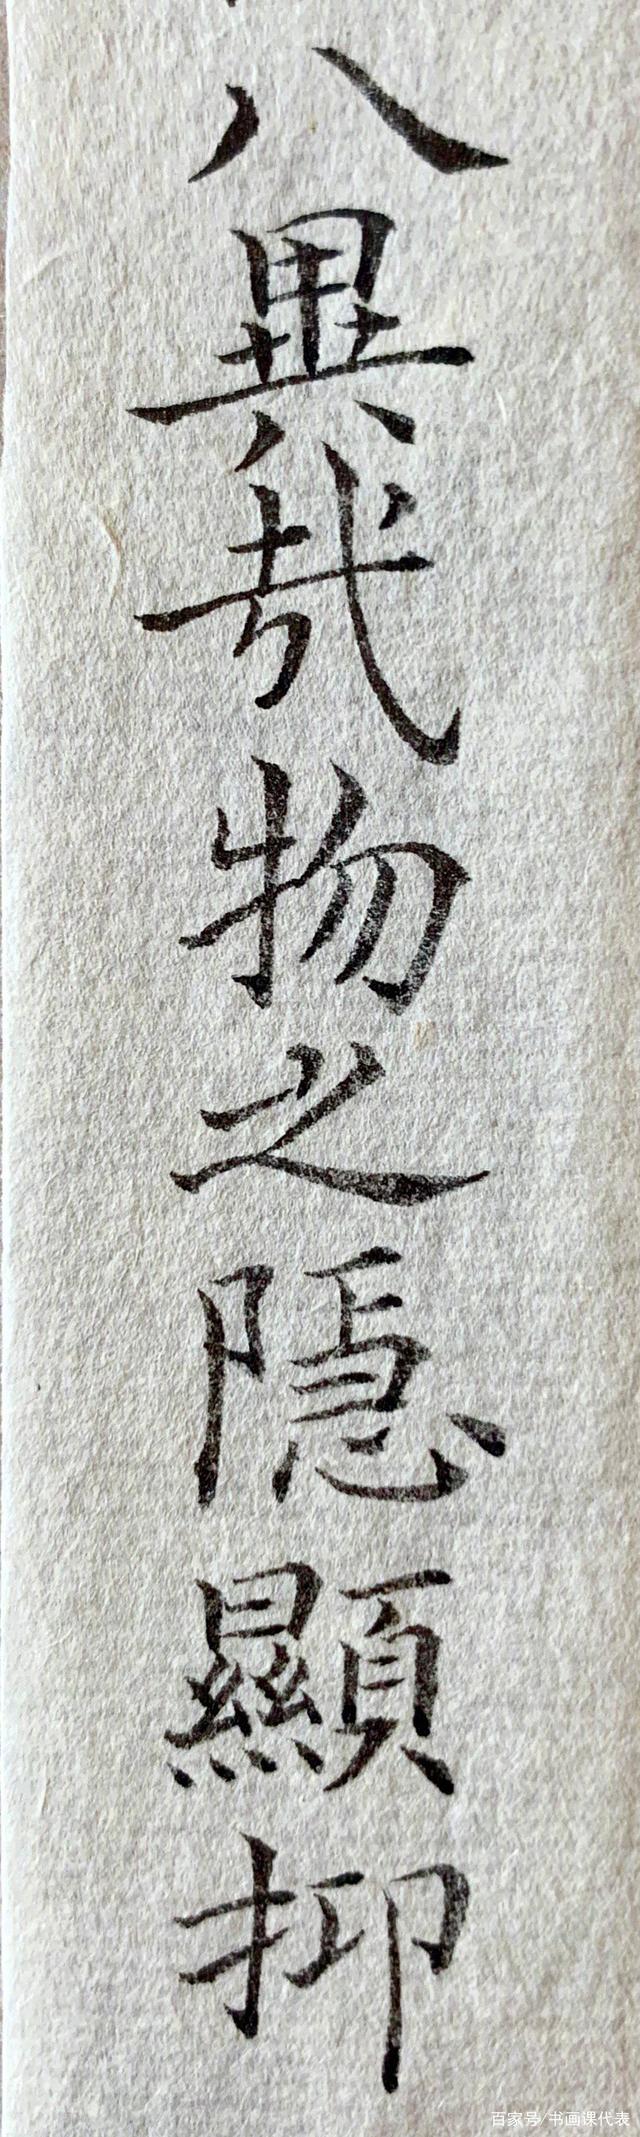 八異哉物之隱顯抑
百家号/书画课代表